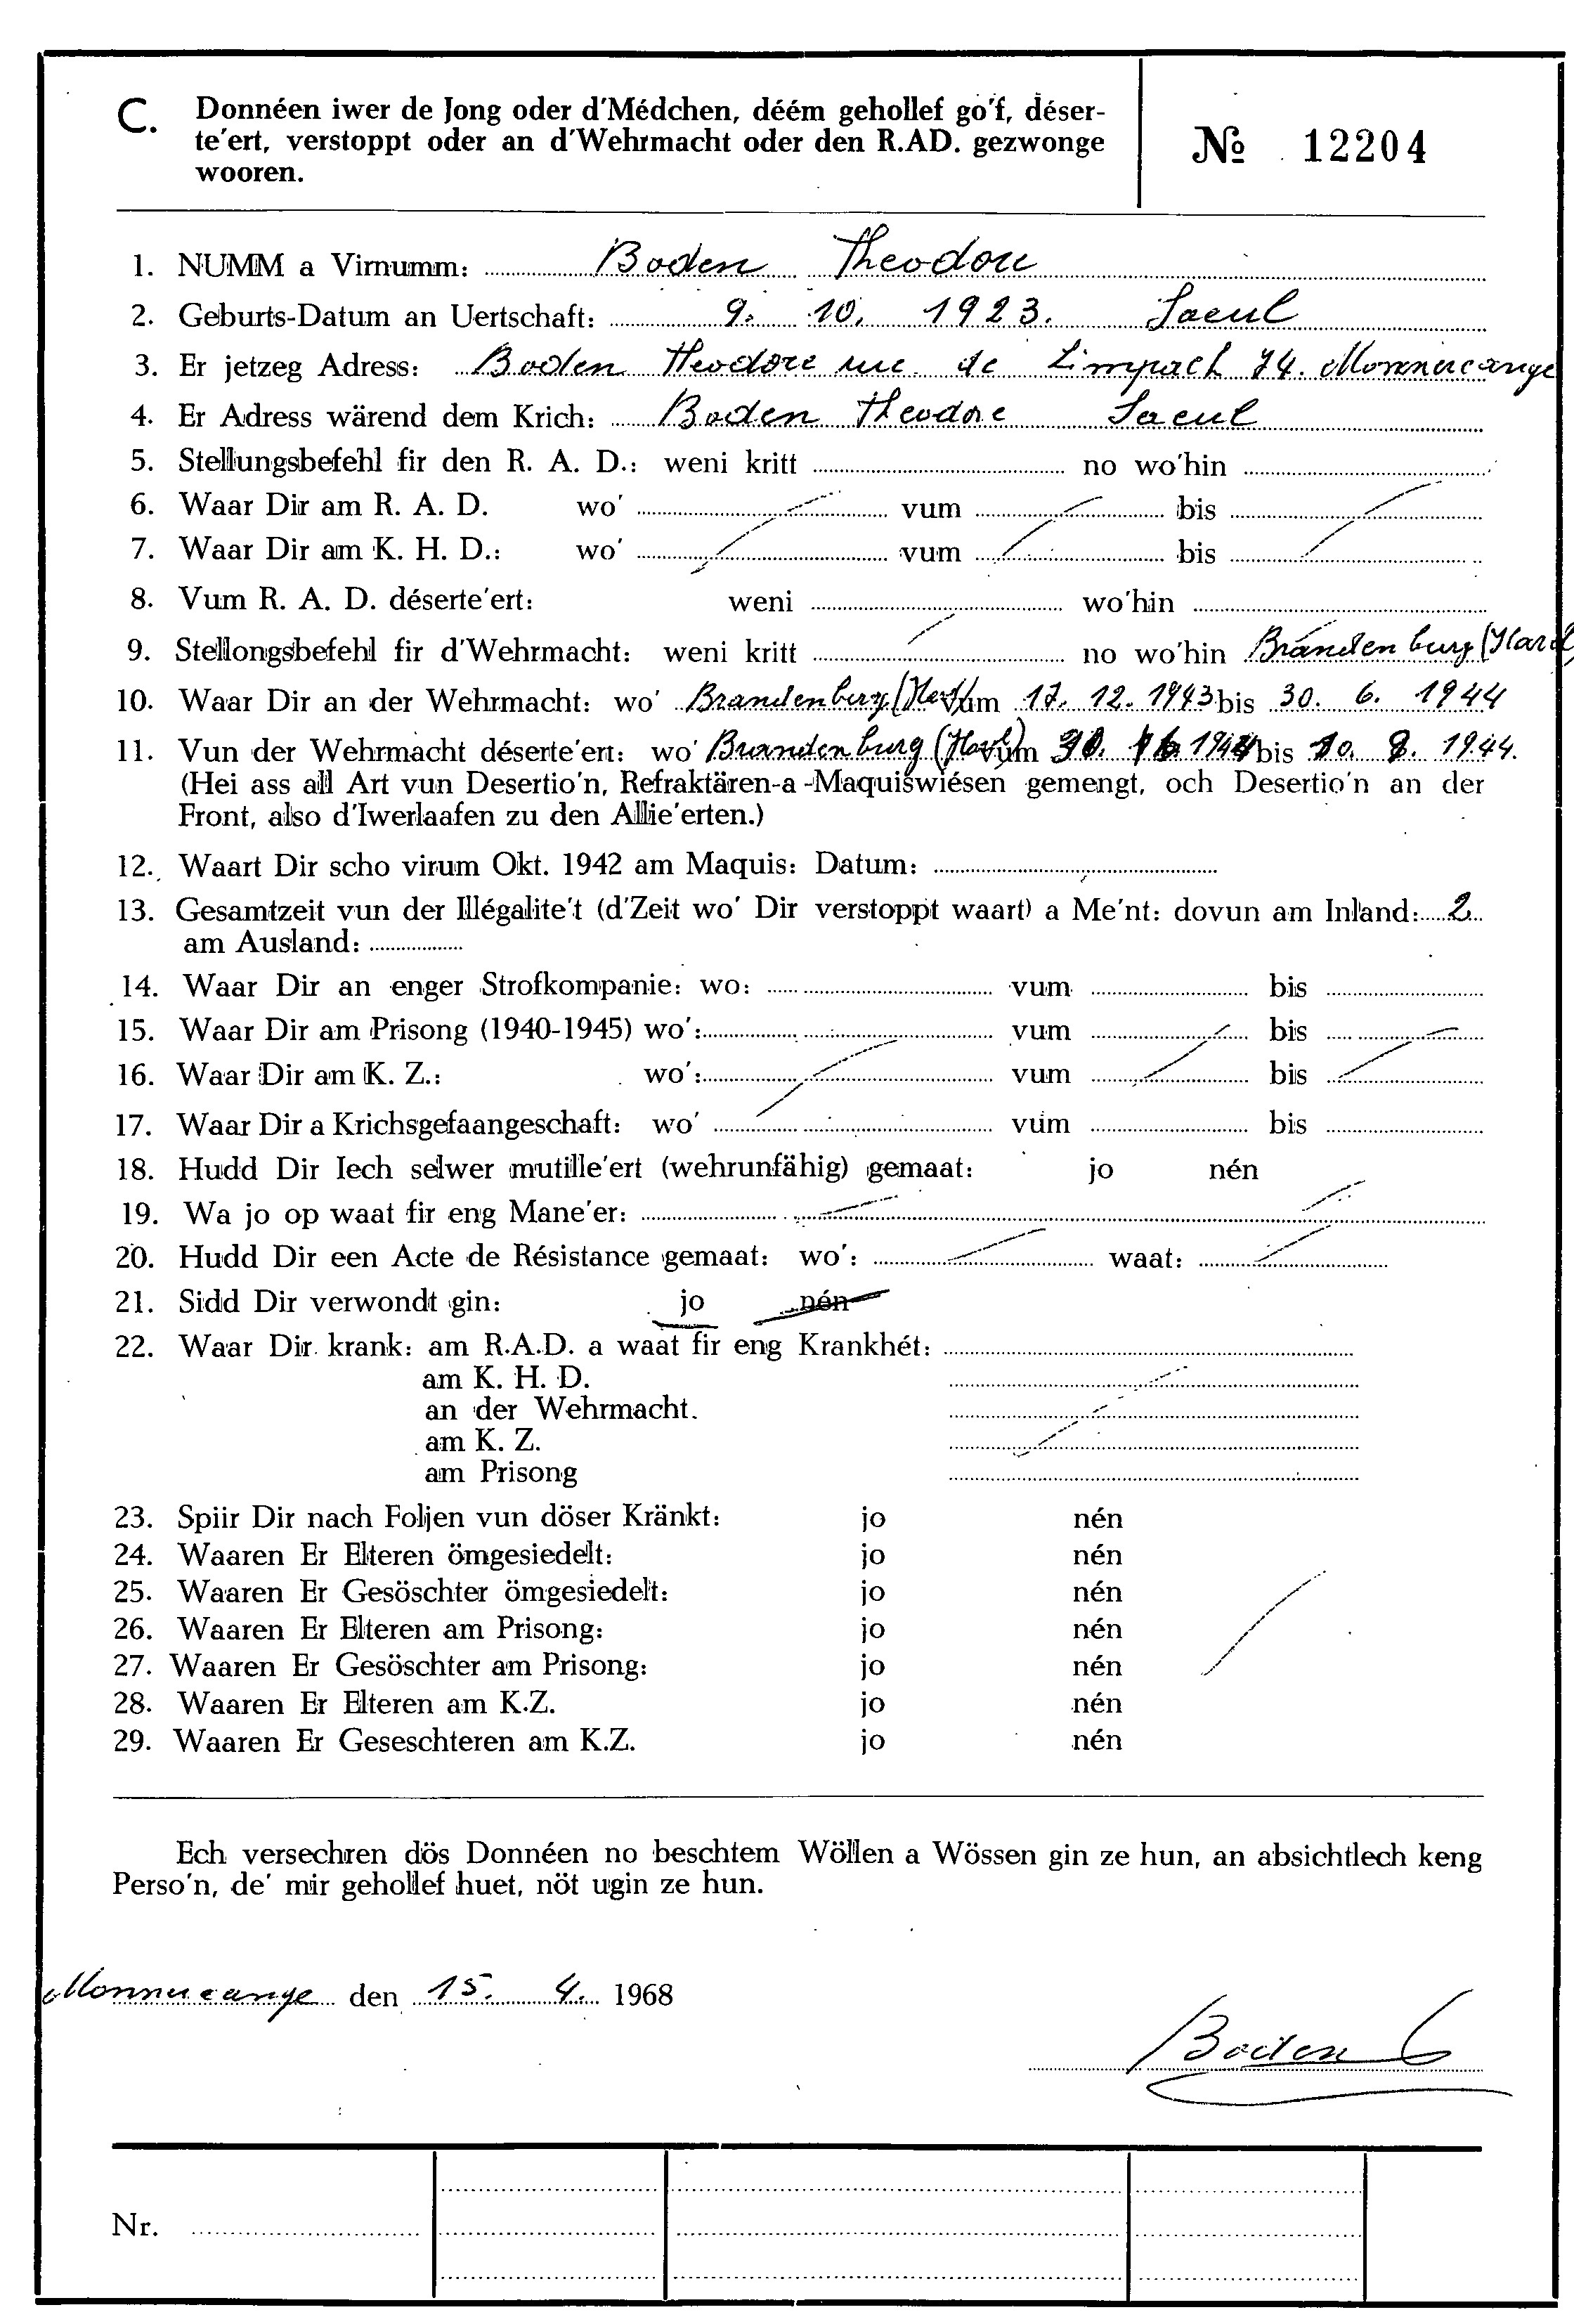 C. Donnéen iwer de Jong oder d'Médchen, déém gehollef go'f, déser-
te'ert, verstoppt oder an d'Wehrmacht oder den R.AD. gezwonge
wooren.
№ 12204
1. NUMM a Virnumm: Boden Theodore
2. Geburts-Datum an Uertschaft: 9. 10. 1923. Saeul
3. Er jetzeg Adress: Boden Theodore rue de Limpach 74. Monnercange
4. Er Adress wärend dem Krich: Boden Theodore Saeul
5. Stellungsbefehl fir den R. A. D.: weni kritt no wo'hin
6. Waar Dir am R. A. D. wo' vum bis
7. Waar Dir am K. H. D.: wo' vum bis
8. Vum R. A. D. déserte'ert: weni wo'hin
9. Stellongsbefehl fir d'Wehrmacht: weni kritt no wo'hin Brandenburg (Havel)
10. Waar Dir an der Wehrmacht: wo' Brandenburg (Havel) vum 17. 12. 1943 bis 30. 6. 1944
11. Vun der Wehrmacht déserte'ert: wo' Brandenburg (Havel) vum 1944 bis 10. 9. 1944.
(Hei ass all Art vun Desertio'n, Refraktären-a -Maquiswiésen gemengt, och Desertio'n an der
Front, also d'Iwerlaafen zu den Allie'erten.)
12. Waart Dir scho virum Okt. 1942 am Maquis: Datum:
13. Gesamtzeit vun der Illégalite't (d'Zeit wo' Dir verstoppt waart) a Me'nt: dovun am Inland: 2
am Ausland:
14. Waar Dir an enger Strofkompanie: wo: vum bis
15. Waar Dir am Prisong (1940-1945) wo': vum bis
16. Waar Dir am K. Z.: wo': vum bis
17. Waar Dir a Krichsgefaangeschaft: wo' vum bis
18. Hudd Dir Iech selwer mutille'ert (wehrunfähig) gemaat: jo nén
19. Wa jo op waat fir eng Mane'er:
20. Hudd Dir een Acte de Résistance gemaat: wo': waat:
21. Sidd Dir verwondt gin: jo nén
22. Waar Dir krank: am R.A.D. a waat fir eng Krankhét:
am K. H. D.
an der Wehrmacht.
am K. Z.
am Prisong
23. Spiir Dir nach Foljen vun döser Kränkt: jo nén
24. Waaren Er Elteren ömgesiedelt: jo nén
25. Waaren Er Gesöschter ömgesiedelt: jo nén
26. Waaren Er Elteren am Prisong: jo nén
27. Waaren Er Gesöschter am Prisong: jo nén
28. Waaren Er Elteren am K.Z. jo nén
29. Waaren Er Geseschteren am K.Z. jo nén
Ech versechren dös Donnéen no beschtem Wöllen a Wössen gin ze hun, an absichtlech keng
Perso'n, de' mir gehollef huet, nöt ugin ze hun.
Monnercange den 15. 4. 1968
Boden
Nr.